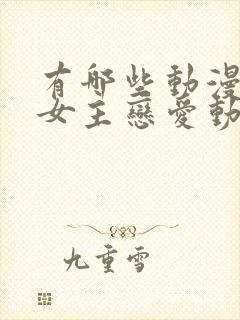 有哪些動漫
女主戀愛動
九重雪